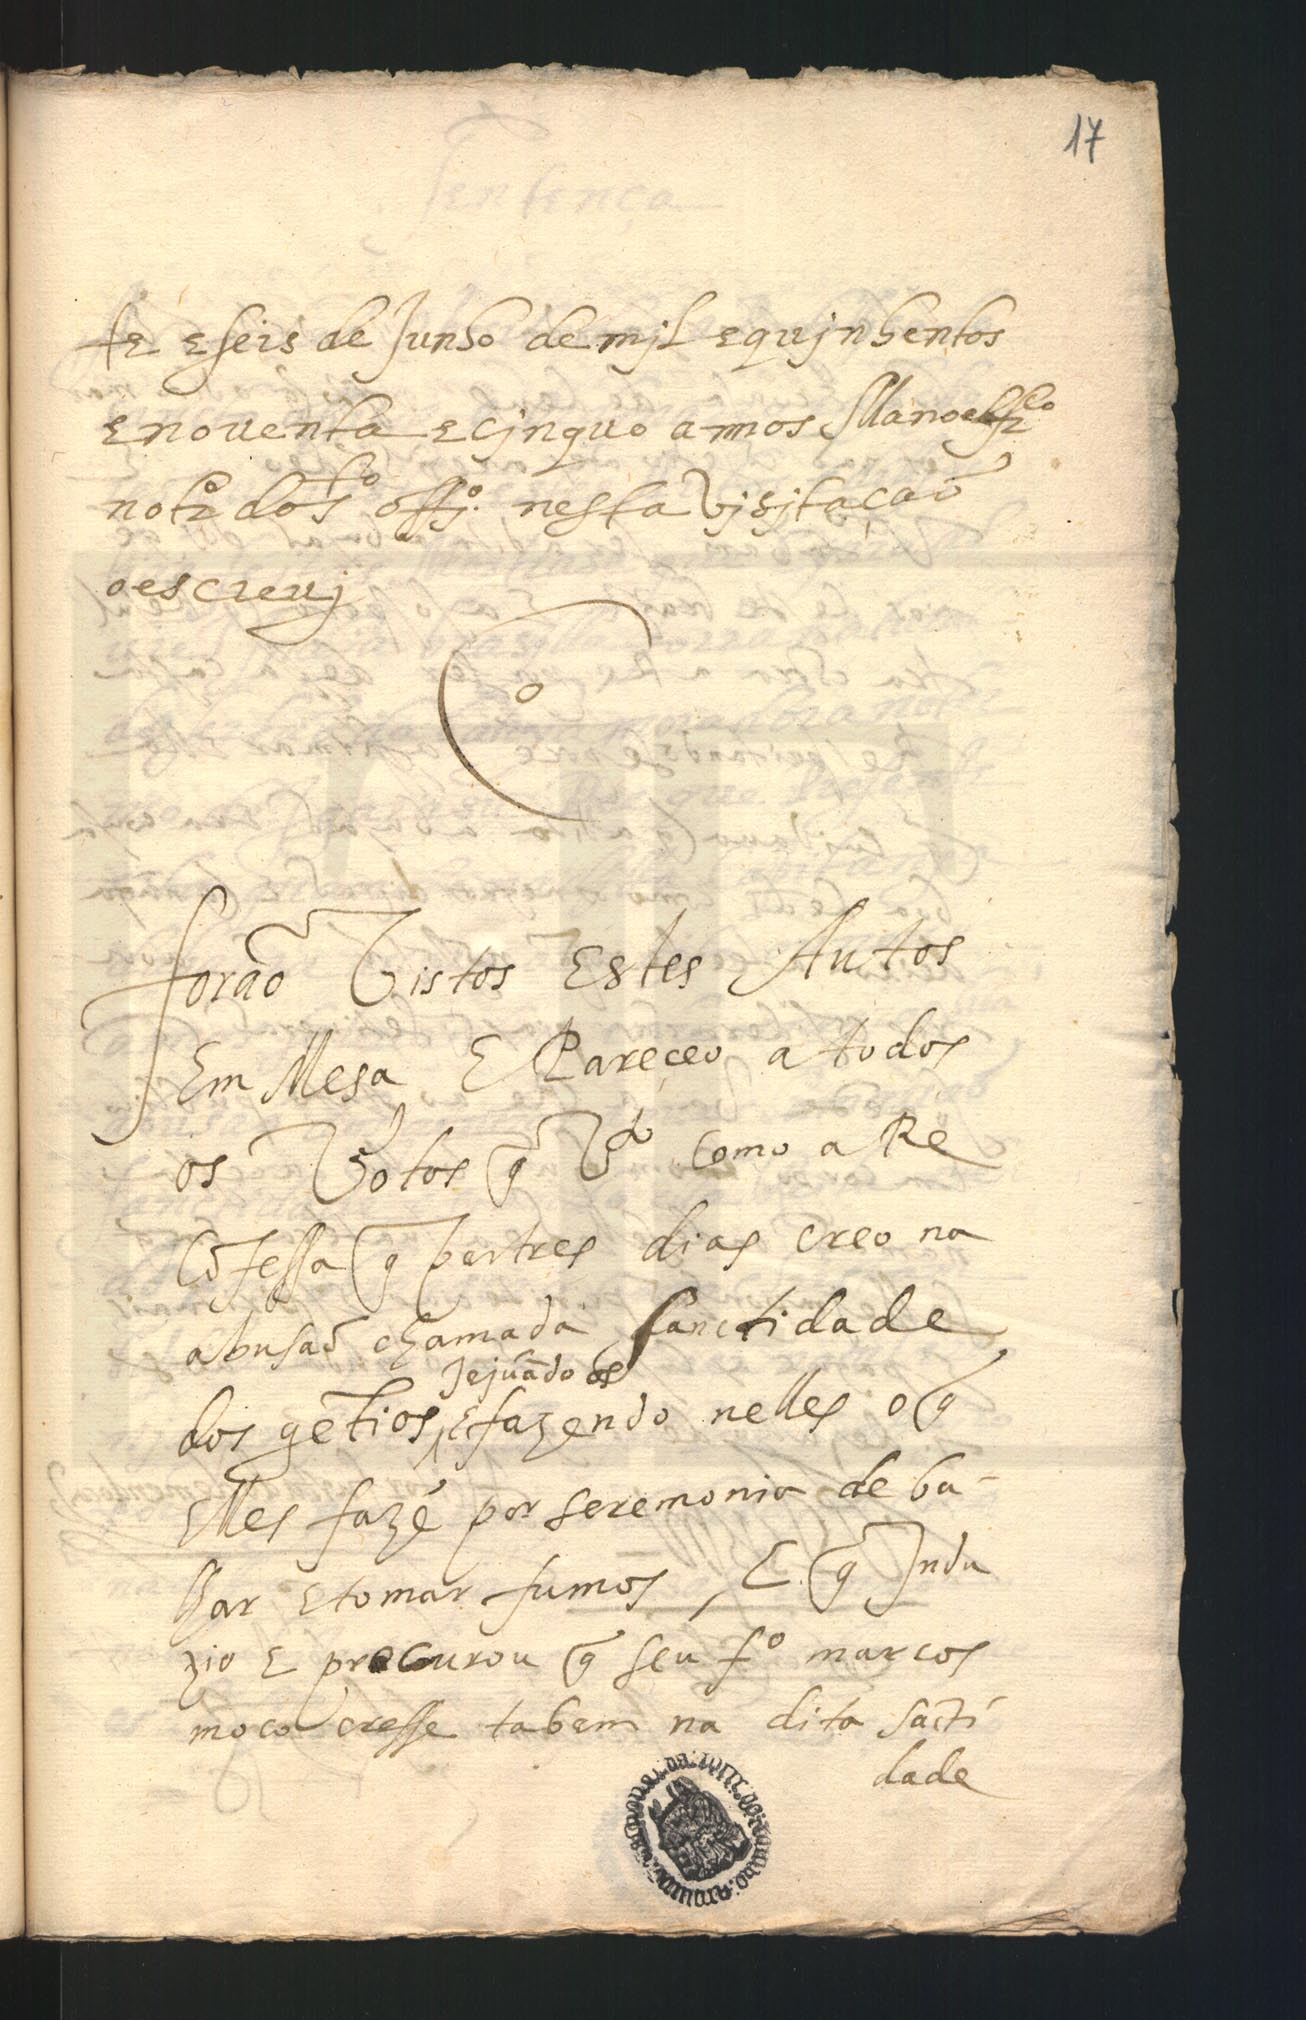 17
te e seis de Junho de mjl e qujnhentos
e nouenta e cjnquo annos Manoel frco
notro do sto offjo. nesta Visitação
o escreuj
forão Vistos Estes Autos
Em Mesa E Pareçeo a todos
os Votos q̃ Vdo como a Re
Cõfessa q̃ per tres dias creo na
abusaõ chamada sanctidade
dos gẽtios, Jejuãdo os
e fazendo nelles o q̃
Elles fazẽ por seremonia de ba-
lhar e tomar fumos, E q̃ Indu
zio E procurou q̃ seu fo marcos
moço cresse tabem na dita sãcti
dade